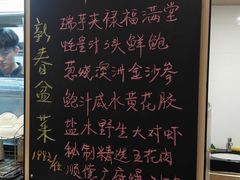 敦春盆菜
1982位
瑞芋来禄福满堂
蚝皇汁3头鲜鲍
葱烧澳洲金沙参
鲍汁咸水黄花胶
盐水野生大对虾
秘制精选五花肉
顺德